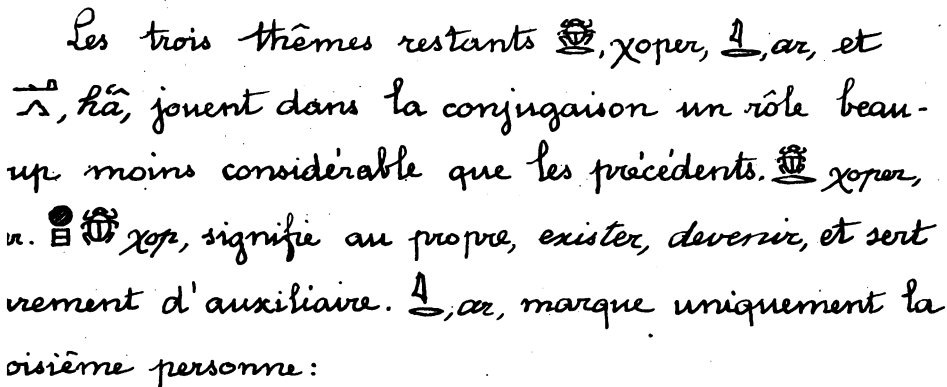 Les trois thêmes restants 𓆣, χoper, 𓂋, ar, et
𓂻, hâ, jouent dans la conjugaison un rôle beau-
up moins considérable que les précédents. 𓆣𓂋 χoper,
r. 𓐍𓊪𓆣 χop, signifie au propre, exister, devenir, et sert
rement d'auxiliaire. 𓂋, ar, marque uniquement la
oisiême personne :